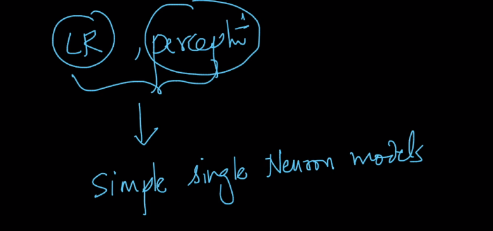 LR , perceptron
simple single Neuron models